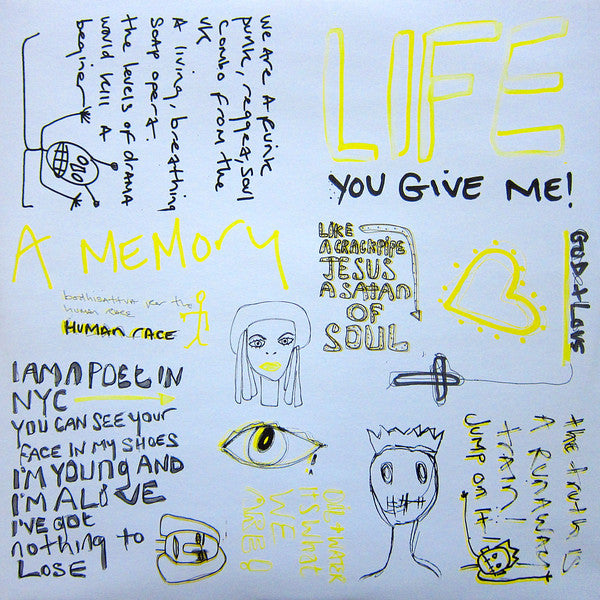 we are a funk
punk, reggea, soul
combo from the
UK
A living, breathing
soap opera.
the levels of drama
would kill a
beginer
LIFE
YOU GIVE ME!
A MEMORY
bodhisattva for the
human race
HUMAN RACE
LIKE
A CRACKPIPE
JESUS
A SATAN
OF
SOUL
GOD + LOVE
I AM A POET IN
NYC
YOU CAN SEE YOUR
FACE IN MY SHOES
I'M YOUNG AND
I'M ALIVE
I'VE GOT
nothing to
LOSE
+ WATER
IT'S WHAT
WE
ARE!
the truth is
A RUNAWAY
train!
JUMP ON IT!